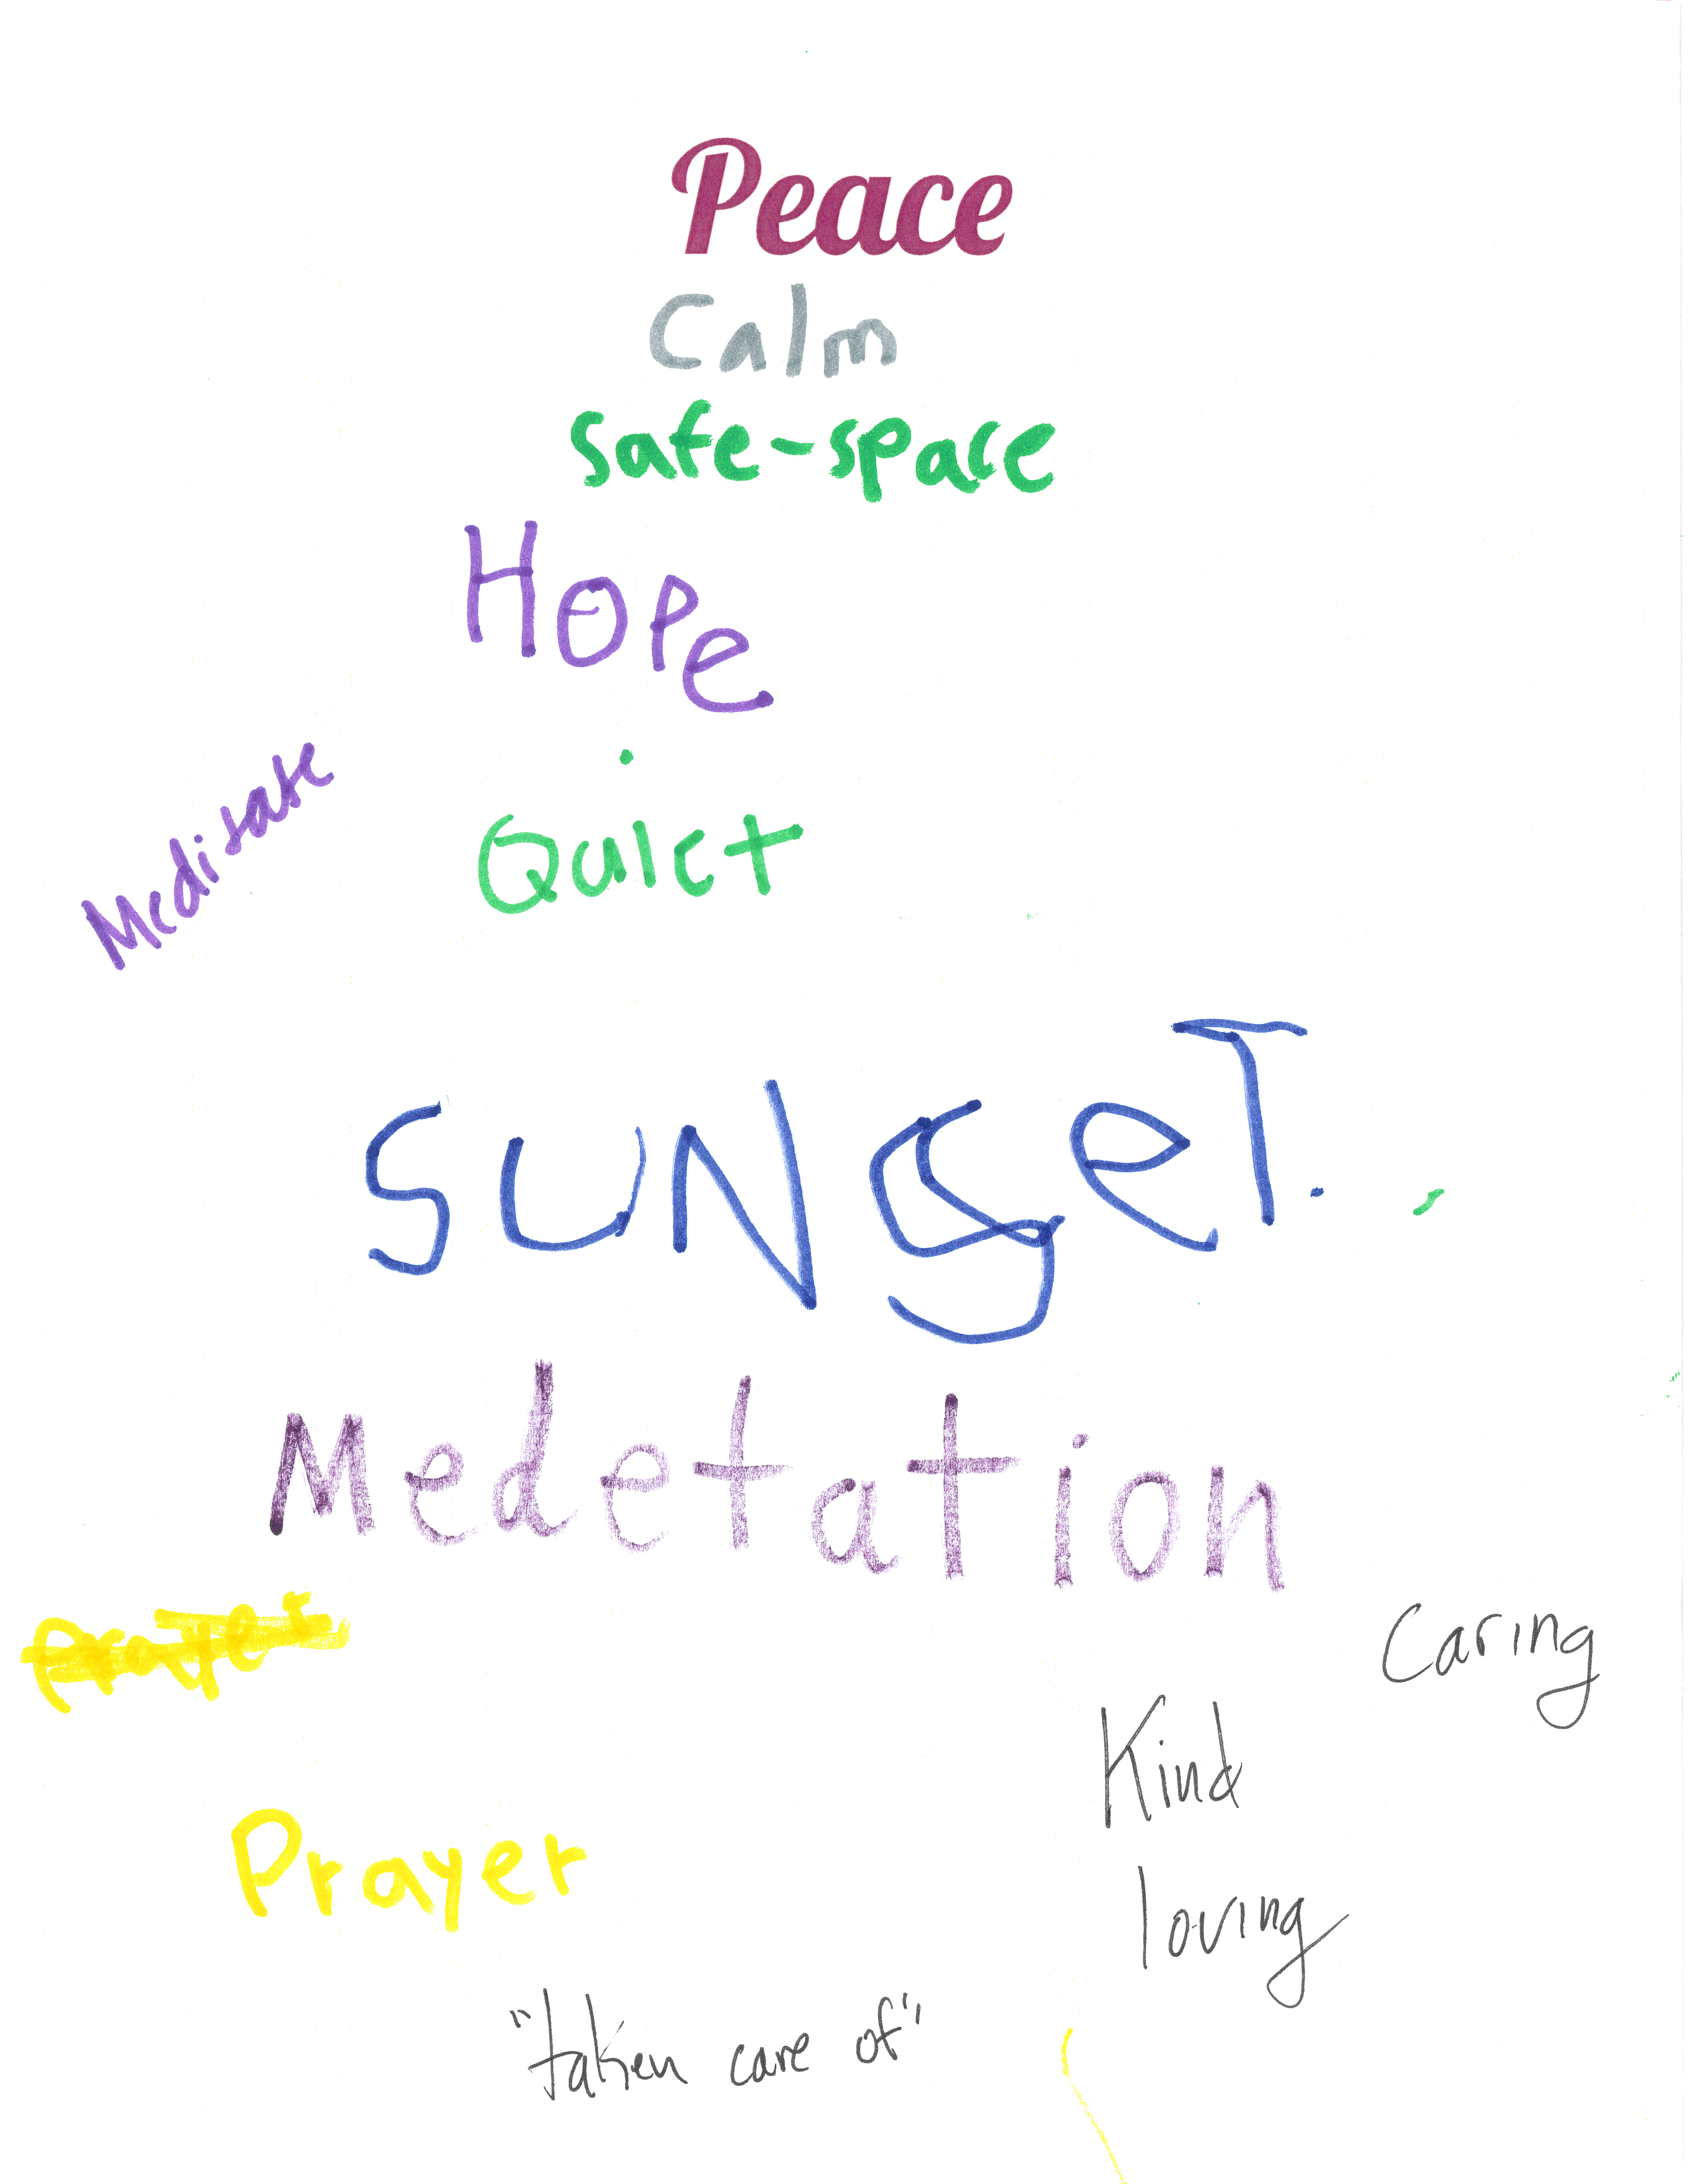 Peace
Calm
safe-space
HOPe
Meditate
Quiet
SUNSeT.
Medetation
Prayer
Caring
Kind
Prayer
loving
"taken care of"